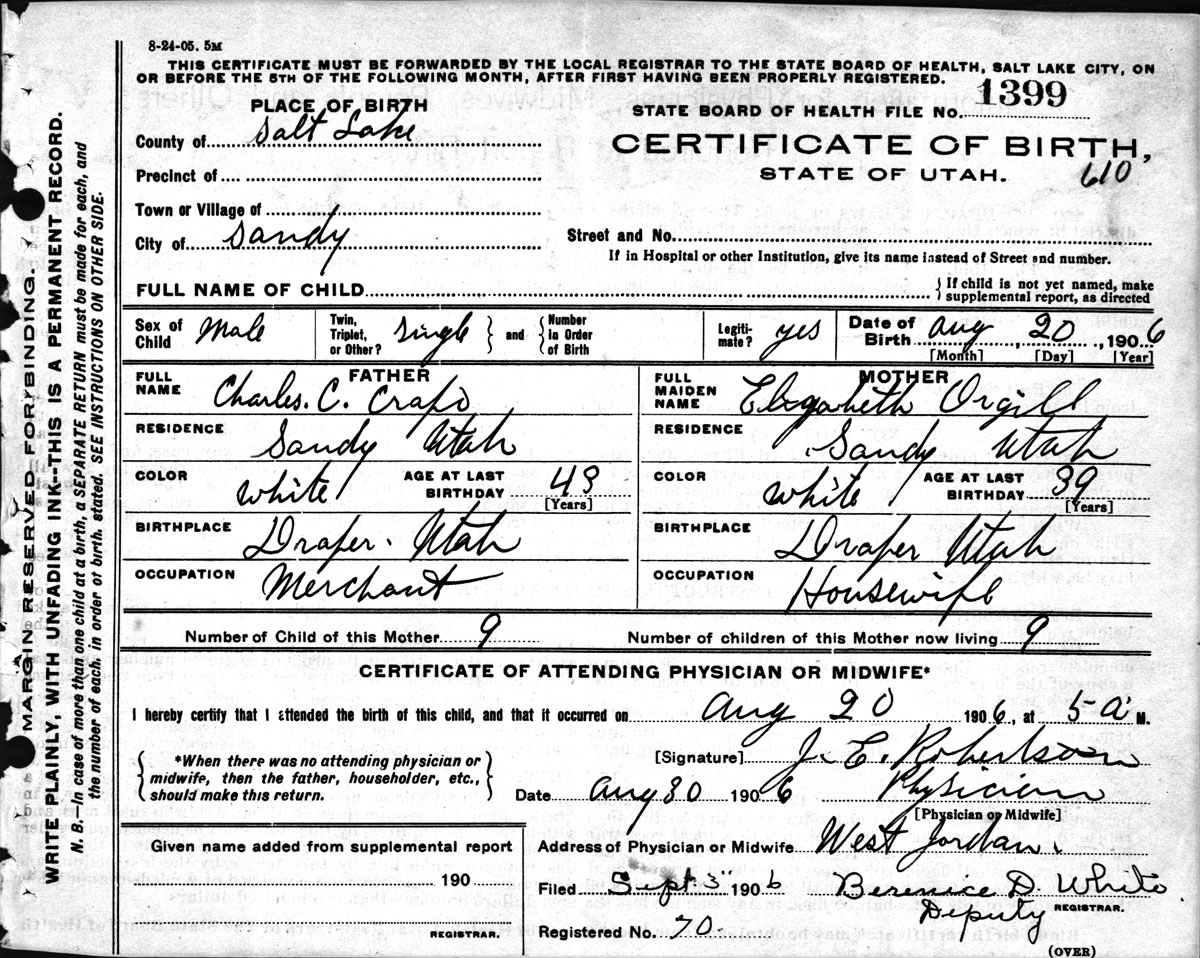 8-24-05. 5M
THIS CERTIFICATE MUST BE FORWARDED BY THE LOCAL REGISTRAR TO THE STATE BOARD OF HEALTH, SALT LAKE CITY, ON
OR BEFORE THE 5TH OF THE FOLLOWING MONTH, AFTER FIRST HAVING BEEN PROPERLY REGISTERED.
PLACE OF BIRTH
STATE BOARD OF HEALTH FILE No. 1399
County of Salt Lake
CERTIFICATE OF BIRTH,
Precinct of
STATE OF UTAH.
610
Town or Village of
City of Sandy
Street and No.
If in Hospital or other Institution, give its name instead of Street and number.
FULL NAME OF CHILD
{ If child is not yet named, make
supplemental report, as directed
Sex of Child Male
Twin, Triplet, or Other? Single } and { Number in Order of Birth
Legitimate? yes
Date of Birth Aug, 20, 1906
[Month] [Day] [Year]
FATHER
MOTHER
FULL NAME Charles. C. Crapo
FULL MAIDEN NAME Elizabeth Orgill
RESIDENCE Sandy Utah
RESIDENCE Sandy Utah
COLOR white AGE AT LAST BIRTHDAY 43 [Years]
COLOR white AGE AT LAST BIRTHDAY 39 [Years]
BIRTHPLACE Draper. Utah
BIRTHPLACE Draper Utah
OCCUPATION Merchant
OCCUPATION Housewife
Number of Child of this Mother 9
Number of children of this Mother now living 9
CERTIFICATE OF ATTENDING PHYSICIAN OR MIDWIFE*
I hereby certify that I attended the birth of this child, and that it occurred on Aug 20 1906, at 5-a M.
{ *When there was no attending physician or
midwife, then the father, householder, etc.,
should make this return. }
[Signature] J. E. Robertson
Date Aug 30 1906 Physician
[Physician or Midwife]
Given name added from supplemental report
190
REGISTRAR.
Address of Physician or Midwife West Jordan.
Filed Sept. 3" 1906 Berenice D. White
REGISTRAR.
Deputy
Registered No. 70.
(OVER)
MARGIN RESERVED FOR BINDING.
WRITE PLAINLY, WITH UNFADING INK--THIS IS A PERMANENT RECORD.
N. B.—In case of more than one child at a birth, a SEPARATE RETURN must be made for each, and
the number of each, in order of birth, stated. SEE INSTRUCTIONS ON OTHER SIDE.